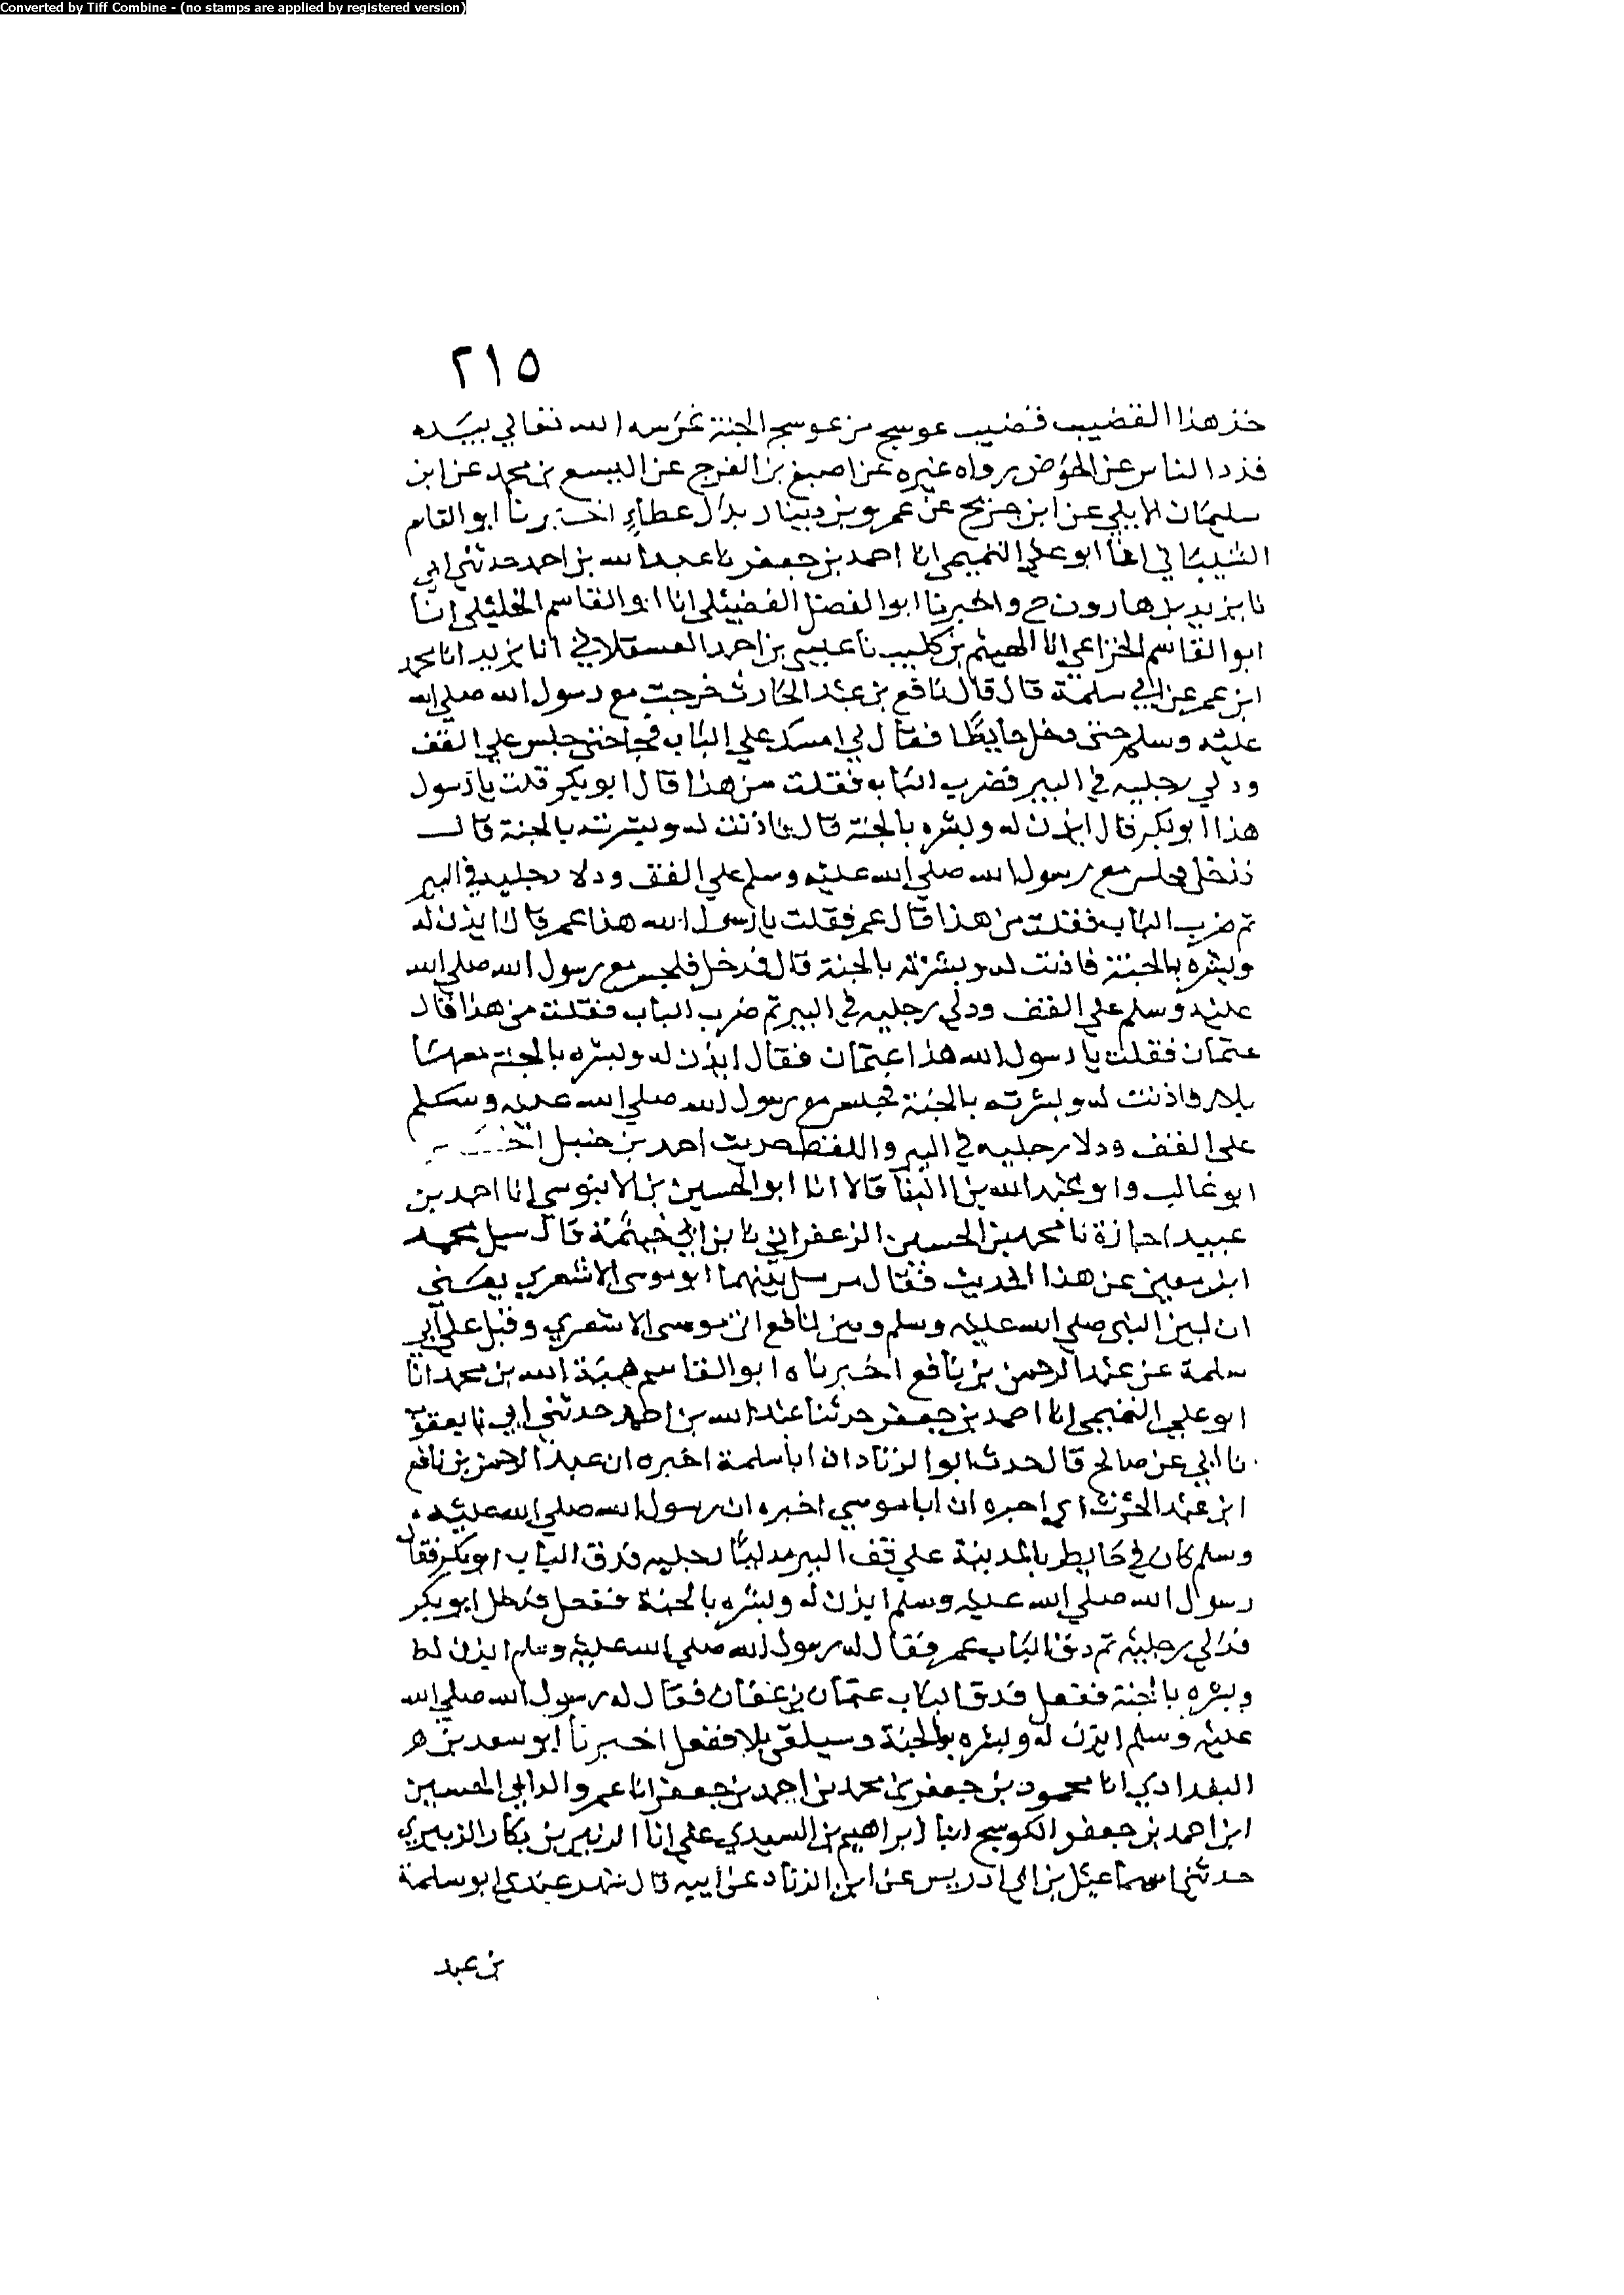 Converted by Tiff Combine - (no stamps are applied by registered version)
٢١٥
خذ هذا القضيب قضيب عوسج من عوسج الجنة غرسه الله تعالي بيده
فذد الناس عن الحوض رواه غيره عن اصبغ بن الفرج عن اليسع بن محمد عن ابن
سليمان الايلي عن ابن جريج عن عمرو بن دينار بدل عطاء اخبرنا ابو القاسم
الشيباني انا ابو علي التميمي انا احمد بن جعفر نا عبد الله بن احمد حدثني ابي
نا يزيد بن هارون ح واخبرنا ابو الفضل الفضيلي انا ابو القاسم الخليلي انا
ابو القاسم الخزاعي انا الهيثم بن كليب نا عيسي بن احمد العسقلاني انا يزيد انا محمد
ابن عمر عن ابي سلمة قال قال نافع بن عبد الحارث خرجت مع رسول الله صلي الله
عليه وسلم حتى دخل حايطا فقال لي امسك علي الباب فجا حتى جلس علي القف
ودلي رجليه في البير فضرب الباب فقلت من هذا قال ابو بكر قلت يا رسول
هذا ابو بكر قال ايذن له وبشره بالجنة قال فاذنت له وبشرته بالجنة قال
فدخل فجلس مع رسول الله صلي الله عليه وسلم علي القف ودلا رجليه في البير
ثم ضرب الباب فقلت من هذا قال عمر فقلت يا رسول الله هذا عمر قال ايذن له
وبشره بالجنة فاذنت له وبشرته بالجنة قال فدخل فجلس مع رسول الله صلي الله
عليه وسلم علي القف ودلي رجليه في البير ثم ضرب الباب فقلت من هذا قال
عثمان فقلت يا رسول الله هذا عثمان فقال ايذن له وبشره بالجنة معها
بلاء فاذنت له وبشرته بالجنة فجلس مع رسول الله صلي الله عليه وسلم
على القف ودلا رجليه في البير واللفظ حديث احمد بن حنبل
ابو غالب وابو عبد الله بن البنا قالا انا ابو الحسين بن الابنوسي انا احمد بن
عبيد اجازة نا محمد بن الحسين الزعفراني نا بن ابي خيثمة قال سيل يحيى
ابن معين عن هذا الحديث فقال مرسل بينهما ابو موسى الاشعري يعني
ان بين النبي صلي الله عليه وسلم وبين نافع ابو موسى الاشعري وقيل عن ابي
سلمة عن عبد الرحمن بن نافع اخبرناه ابو القاسم هبة الله بن محمد انا
ابو علي التميمي انا احمد بن جعفر حدثنا عبد الله بن احمد حدثني ابي نا يعقوب
نا ابي عن صالح قال حدث ابو الزناد ان ابا سلمة اخبره ان عبد الرحمن بن نافع
ابن عبد الحرث اخبره ان ابا موسي اخبره ان رسول الله صلي الله عليه
وسلم كان في حايط بالمدينة علي قف البير مدليا رجليه فدق الباب ابو بكر فقال
رسول الله صلي الله عليه وسلم ايذن له وبشره بالجنة ففعل فدخل ابو بكر
فدلي رجليه ثم دق الباب عمر فقال له رسول الله صلي الله عليه وسلم ايذن له
وبشره بالجنة ففعل فدق الباب عثمان بن عفان فقال له رسول الله صلي الله
عليه وسلم ايذن له وبشره بالجنة وسيلقى بلا ففعل اخبرنا ابو سعد بن
البغدادي انا محمود بن جعفر بن محمد بن احمد بن جعفر انا عم والدي ابو الحسين
ابن احمد بن جعفر الكوسج ابنا ابراهيم بن السندي بن علي انا الزبير بن بكار الزبيري
حدثني اسماعيل بن ابي ادريس عن ابن ابي الزناد عن ابيه قال شهد عندي ابو سلمة
بن عبد